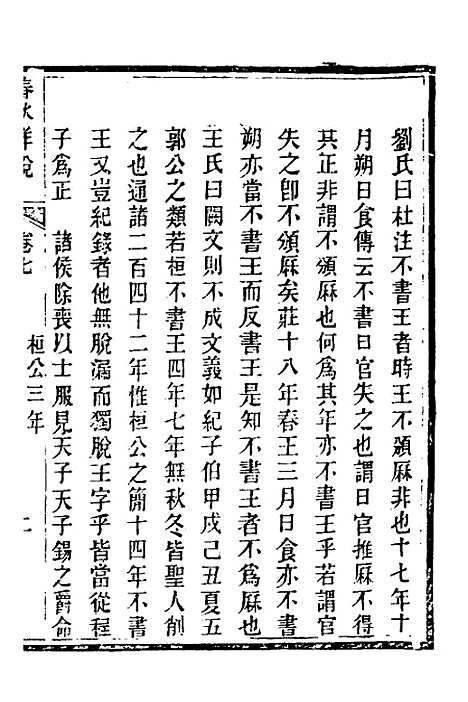 劉氏曰杜注不書王者時王不頒厤非也十七年十
月朔日食傳云不書日官失之也謂日官推厤不得
其正非謂不頒厤也何爲其年亦不書王乎若謂官
失之卽不頒厤矣莊十八年春王三月日食亦不書
朔亦當不書王而反書王是知不書王者不爲厤也
王氏曰闕文則不成文義如紀子伯甲戌己丑夏五
郭公之類若桓不書王四年七年無秋冬皆聖人削
之也通諸二百四十二年惟桓公之簡十四年不書
王又豈紀錄者他無脫漏而獨脫王字乎皆當從程
子爲正　諸侯除喪以士服見天子天子錫之爵命
春秋詳說　卷七　桓公三年　二